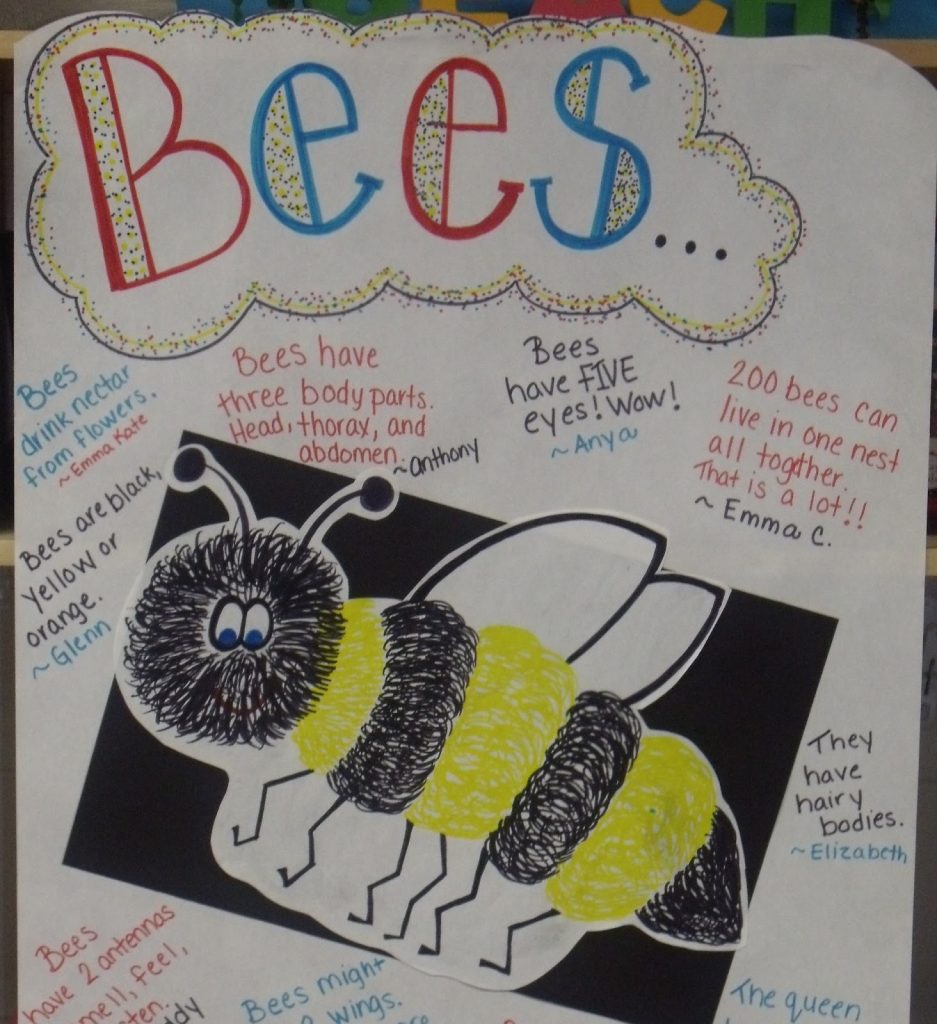 Bees...
Bees
drink nectar
from flowers.
~Emma Kate
Bees have
three body parts.
Head, thorax, and
abdomen.
~Anthony
Bees
have FIVE
eyes! Wow!
~Anya
200 bees can
live in one nest
all togther.
That is a lot!!
~Emma C.
Bees are black,
yellow or
orange.
~Glenn
They
have
hairy
bodies.
~Elizabeth
Bees
have 2 antennas
feel,
Bees might
wings.
The queen